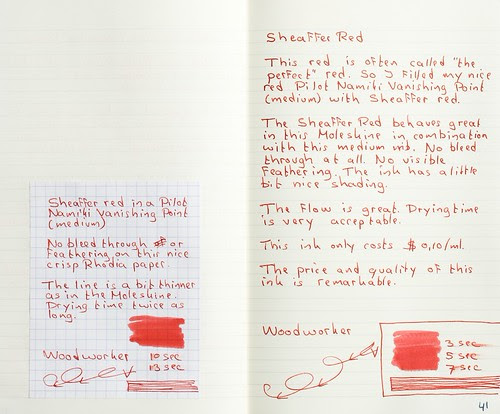 Sheaffer red in a Pilot
Namiki Vanishing Point
(medium)
No bleed through or
feathering on this nice
crisp Rhodia paper.
The line is a bit thinner
as in the Moleskine.
Drying time twice as
long.
Woodworker 10 sec
13 sec
Sheaffer Red
This red is often called "the
perfect" red. So I filled my nice
red Pilot Namiki Vanishing Point
(medium) with Sheaffer red.
The Sheaffer Red behaves great
in this Moleskine in combination
with this medium nib. No bleed
through at all. No visible
feathering. The ink has a little
bit nice shading.
The flow is great. Drying time
is very acceptable.
This ink only costs $ 0,10/ml.
The price and quality of this
ink is remarkable.
Woodworker
3 sec
5 sec
7 sec
41